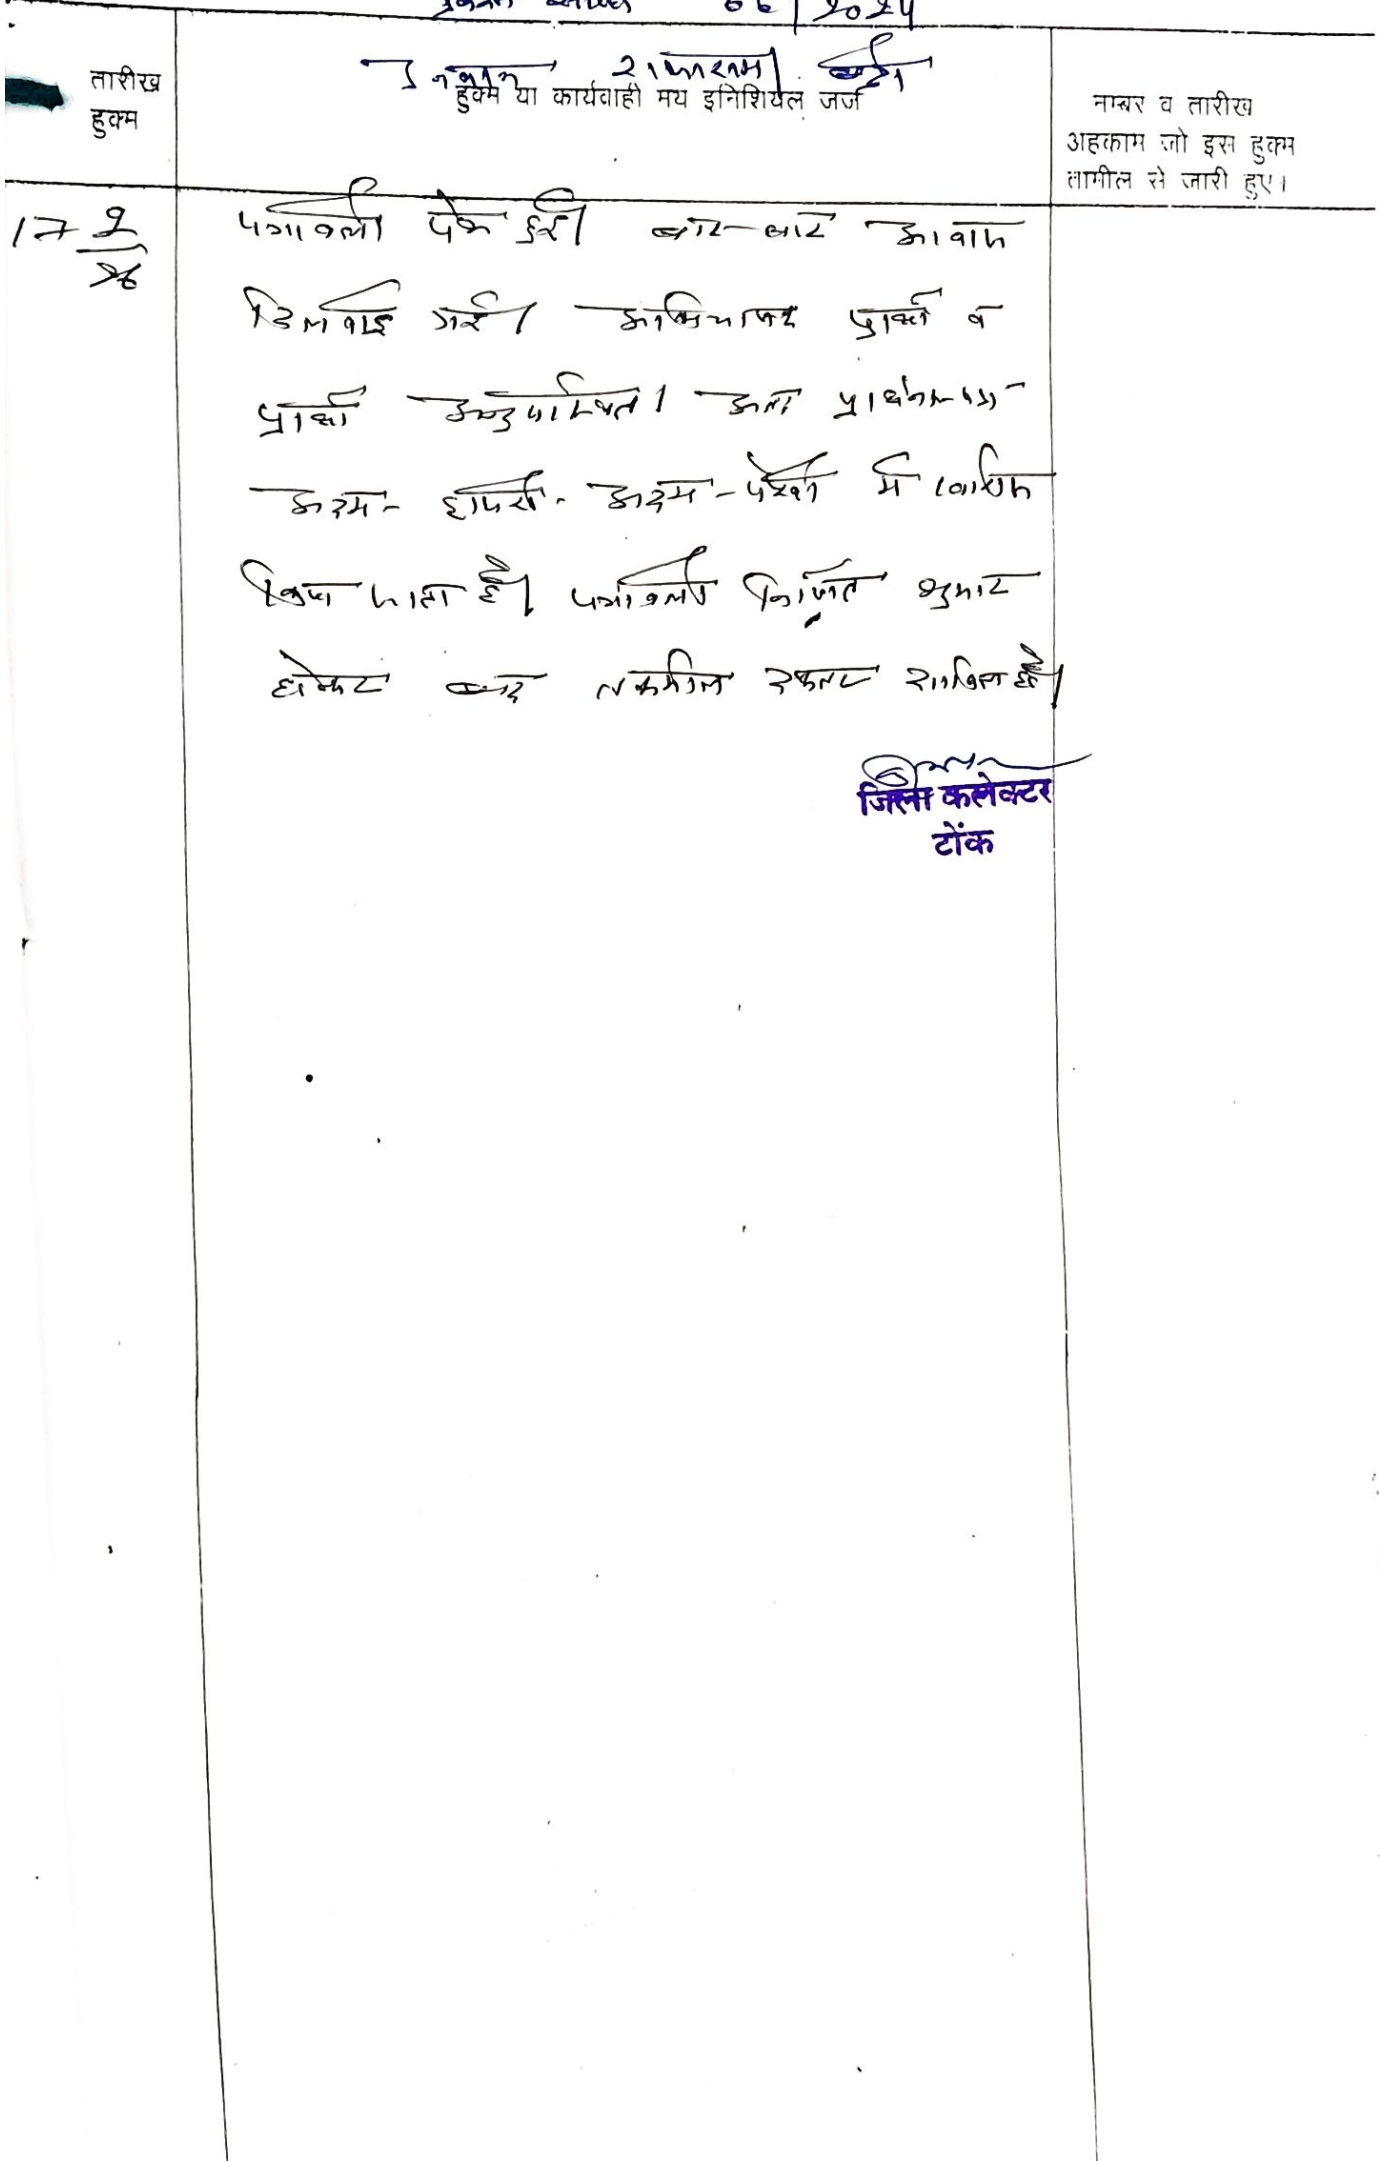 प्रकरण 06/2024
उनवान राजाराम
तारीख हुक्म या कार्यवाही मय इनिशियल जर्ज नम्बर व तारीख
हुक्म अहकाम जो इस हुक्म
तामील से जारी हुए।
17 2/26 पत्रावली पेश हुई। बार-बार आवाज
दिलवाई गई। अभिभाषक प्रार्थी व
प्रार्थी अनुपस्थित। अतः प्रार्थना-पत्र
अदम- हाजरी- अदम-पैरवी में खारिज
किया जाता है। पत्रावली निर्णित शुमार
होकर बाद तकमील दफ्तर दाखिल हो।
जिला कलेक्टर
टोंक